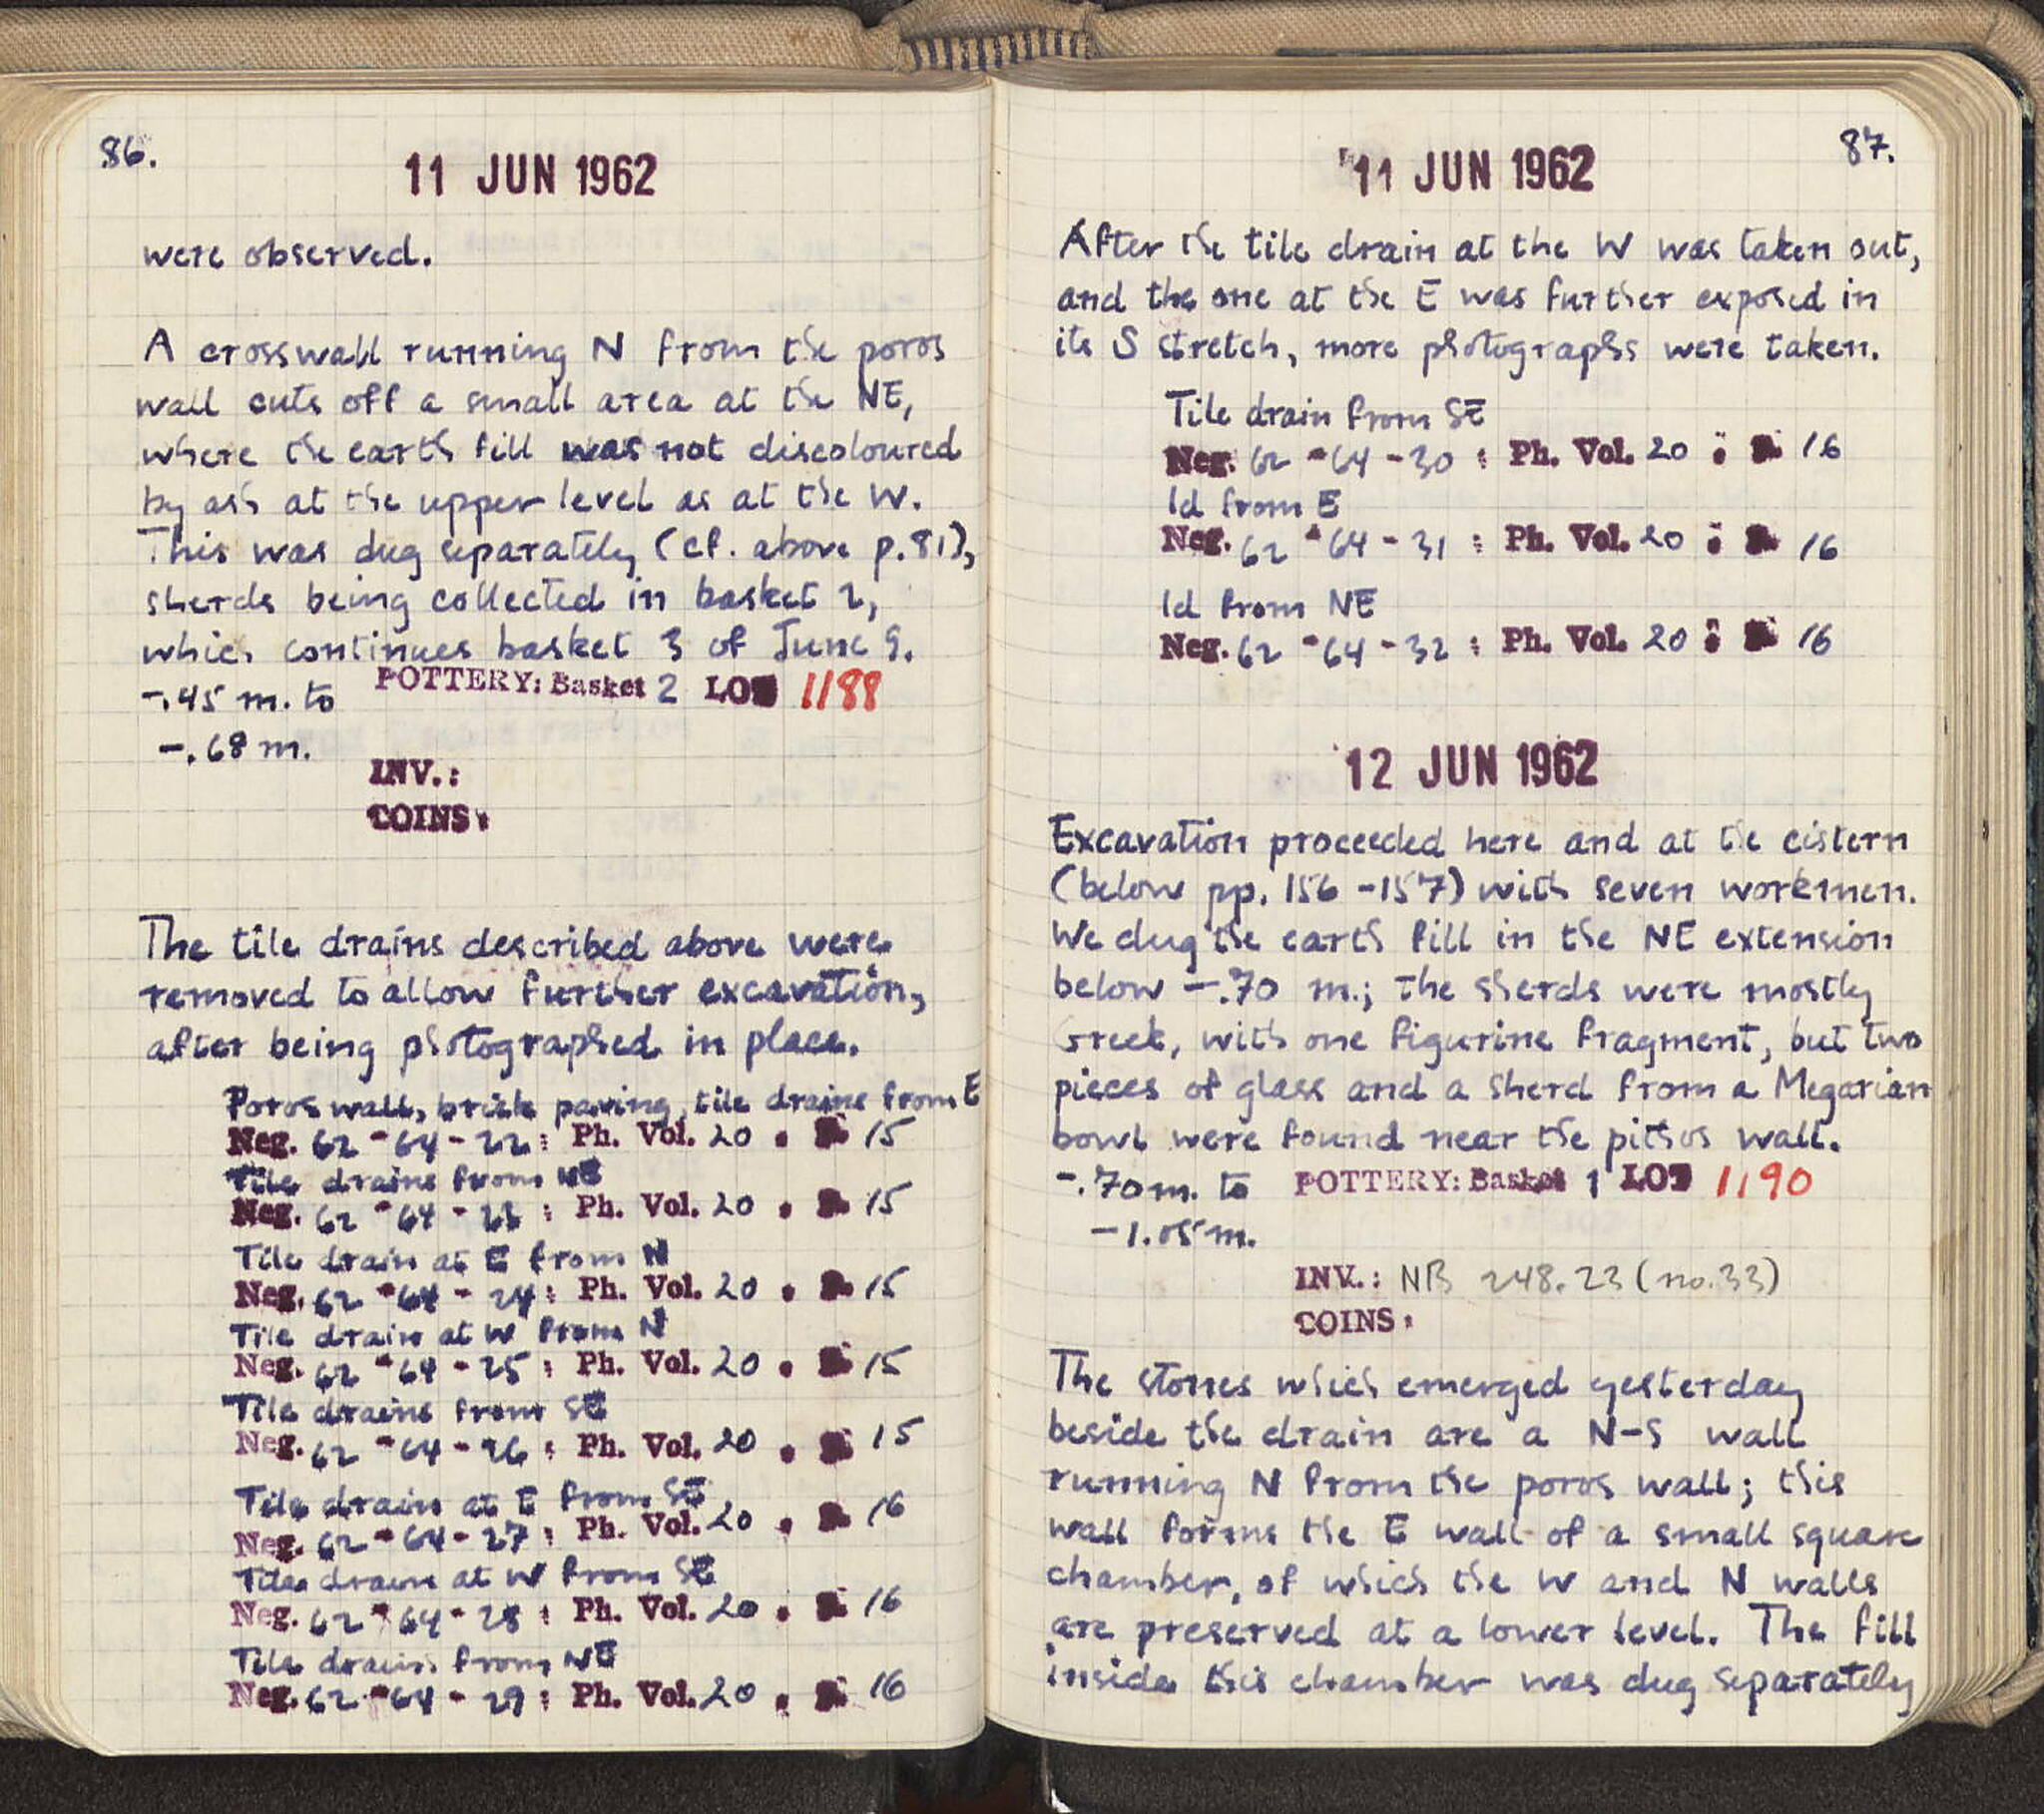 86.
11 JUN 1962
were observed.
A crosswall running N from the poros
wall cuts off a small area at the NE,
where the earth fill was not discoloured
by ash at the upper level as at the W.
This was dug separately (cf. above p. 81),
sherds being collected in basket 2,
which continues basket 3 of June 9.
-.45 m. to POTTERY: Basket 2 LOT 1188
-.68 m.
INV.:
COINS:
The tile drains described above were
removed to allow further excavation,
after being photographed in place.
Poros wall, brick paving, tile drains from E
Neg. 62-64-22: Ph. Vol. 20 . 15
Tile drains from NE
Neg. 62-64-23: Ph. Vol. 20 . 15
Tile drain at E from N
Neg. 62-64-24: Ph. Vol. 20 . 15
Tile drain at W from N
Neg. 62-64-25: Ph. Vol. 20 . 15
Tile drains from SE
Neg. 62-64-26: Ph. Vol. 20 . 15
Tile drain at E from SE
Neg. 62-64-27: Ph. Vol. 20 . 16
Tile drain at W from SE
Neg. 62-64-28: Ph. Vol. 20 . 16
Tile drains from NE
Neg. 62-64-29: Ph. Vol. 20 . 16
87.
11 JUN 1962
After the tile drain at the W was taken out,
and the one at the E was further exposed in
its S stretch, more photographs were taken.
Tile drain from SE
Neg. 62-64-30: Ph. Vol. 20 : 16
Id from E
Neg. 62-64-31: Ph. Vol. 20 : 16
Id from NE
Neg. 62-64-32: Ph. Vol. 20 : 16
12 JUN 1962
Excavation proceeded here and at the cistern
(below pp. 156-157) with seven workmen.
We dug the earth fill in the NE extension
below -.70 m.; the sherds were mostly
Greek, with one figurine fragment, but two
pieces of glass and a sherd from a Megarian
bowl were found near the pithos wall.
-.70 m. to POTTERY: Basket 1 LOT 1190
-1.05 m.
INV.: NB 248.23 (no. 33)
COINS:
The stones which emerged yesterday
beside the drain are a N-S wall
running N from the poros wall; this
wall forms the E wall of a small square
chamber, of which the W and N walls
are preserved at a lower level. The fill
inside this chamber was dug separately